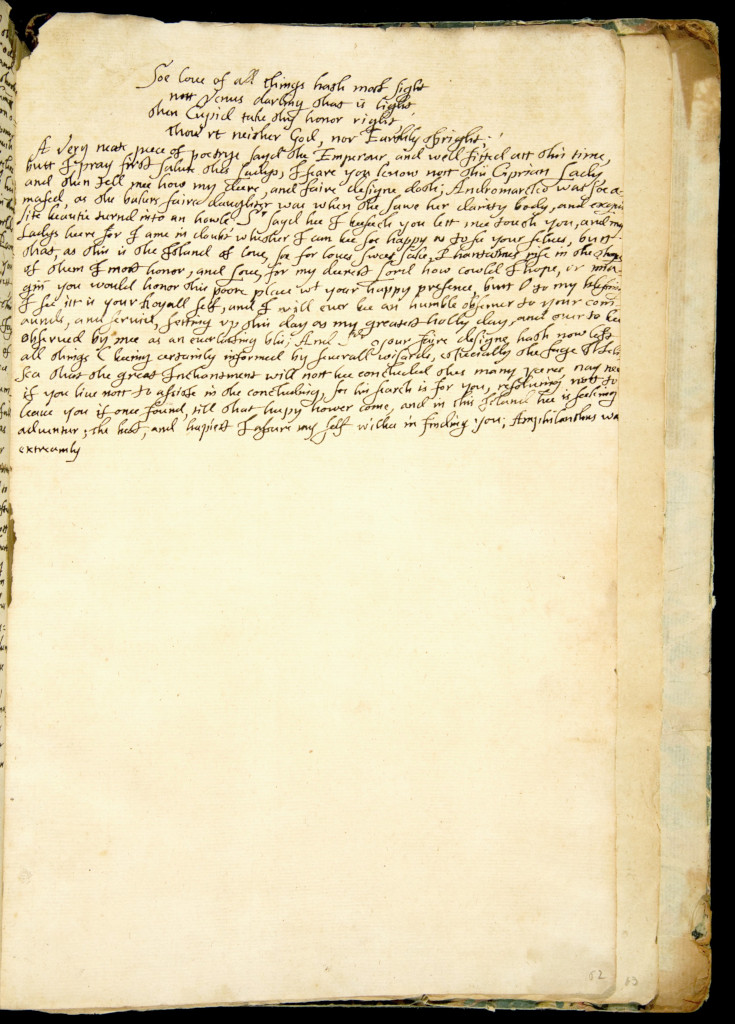 Soe love of all things hath most sight
nott Venus darling that is light
then Cupid take thy honor right
Thou'rt neither God, nor Earthly spright
A very neate piece of poetrye sayd the Emperour, and well fitted att this time,
butt I pray first salute thes Ladys, I feare you know nott this Ciprian Lady
and then tell mee how my deere, and faire designe doth; Andromarko was soe a-
mased, as the bakers faire daughter was when she sawe her dainty body, and exqui
site beautie turned into an howle Sr sayd hee I beseech you lett mee touch you, and my
Ladys heere for I ame in doubt whether I can bee soe happy as to see your selves, butt
that, as this is the Island of love, soe for loves sweet sake, I have
of them I most honor, and love, for my deerest Lord how cowld I hope, or ima-
gin you would honor this poore place wt your happy presence, butt O to my blessing
I see itt is your Royall self, and I will ever bee an humble observer to your com
aunds, and servise, setting up this day as my greatest holly day, and ever to bee
observed by mee as an everlasting blis; And Sr your faire designe hath now left
all things beeing certainly informed by severall wisards, especially the sage
sea that the great Inchantment will nott bee concluded thes many yeeres, nay
if you live nott to assiste in the concluding, soe his search is for you, resolving nott to
leave you if once found, till that hapy hower come, and in this Island hee is seeking
adventur, the best, and hapiest I assure my self wilbee in finding you; Amphilanthus wa
extreamly
62
63